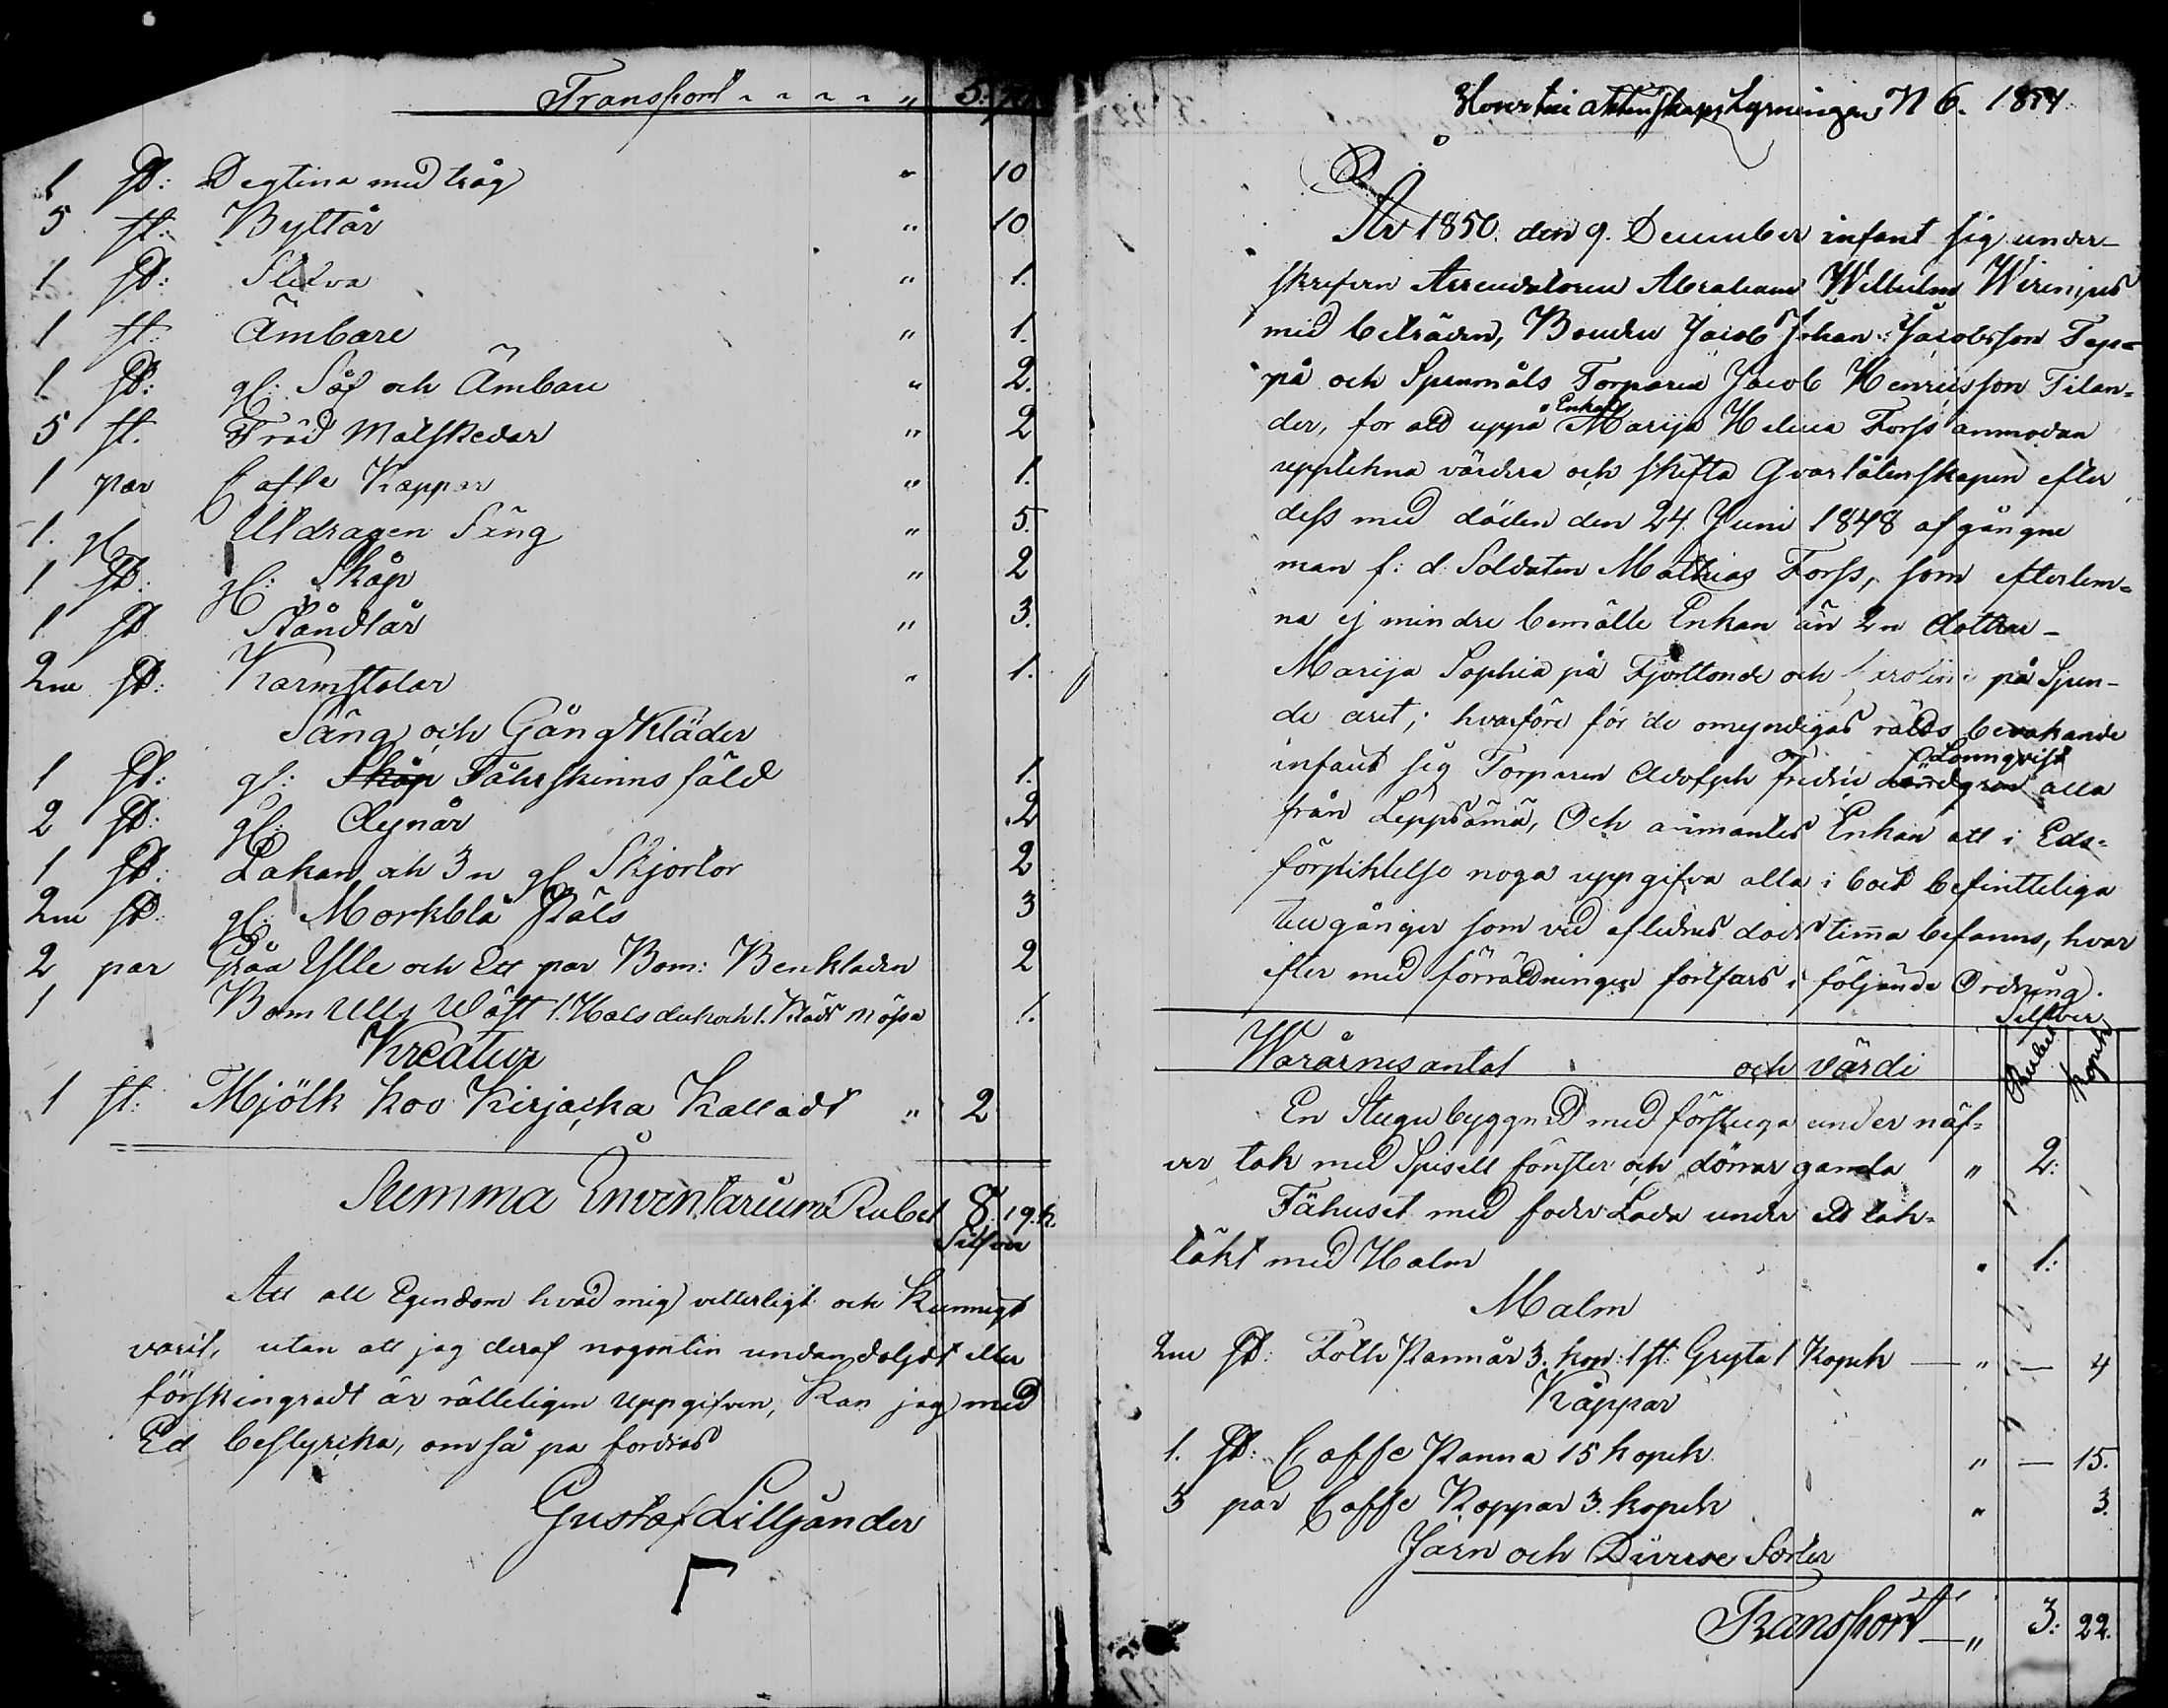 Transport „ 5.
1 st: Degtina med tråg „ 10
5 st: Byttor „ 10
1 st: „ 1.
1 st: Ämbare „ 1.
1 st: gl: Såf och Ämbare „ 2.
5 st. Träd Matskedar „ 2
1 par Caffe Koppar „ 1.
1. gl Utdragen Säng „ 5.
1 st: gl: Skåp „ 2
1 st „ 3.
2ne st: Karmstolar „ 1.
Säng och Gång Kläder
1 st: gl: Skåp Fåhrskinns fäld 1.
2 st: gl: Dynår 2
1 st: Lakan och 3n gl Skjortor 2
2ne st: gl: Morkblå 3
2 par Gråa Ylle och Ett par Bom: Benkläden 2
1 Bom Ulls Wäst 1. Halsduk och 1. mösa 1.
Kreatur
1 st: Mjölk Koo Kirjacka Kalladt „ 2
Summa Inventarium Rubel 8. 19. k.
Silfver
Att all Egendom hvad mig vitterligt och Kunnigt
varit, utan att jag deraf nogontin undandoljdt eller
förskingradt är rätteligen uppgifven, Kan jag med
Ed bestyrka, om så på fordras
Gustaf Lilljander
N 6. 1851
År 1850. den 9. December infant sig under-
skrifven Arrendatoren Abraham Wilhelm Wirenius
med beträden, Bonden Jacob Johan Jacobsson Tep-
på och Spenmåls Torparen Jacob Henricsson Tilan-
der, for att uppå Enkan Marija Helena Forss anmodan
upptekna värdera och skifta Qvarlåtenskapen efter
dess med döden den 24 Juni 1848 afgångne
man f: d: Soldaten Mathias Forss, som efterlem-
na ej mindre bemälte Enkan än 2n dottrar-
Marija Sophia på Fjortonde och på Sjun-
de året; hvarföre för de omyndigas rätts bevakande
infant sig Torparen Adolph Fredric Lönnqvist alla
från Leppsämä, Och anmantes Enkan att i Eds-
förpliktelse noga uppgifva alla i boet befintteliga
tillgångar som vid aflidnes döds timma befanns, hvar
efter med förrättningen fortfars i följande Ordning.
Warårnes antal och värdi Silfver Rubel Kopek
En Stugu byggnad med förstuga under näf-
ver tak med Spisell fönster och dörrar gamla „ 2:
Fähuset med foder Lada under ett tak-
täkt med Halm „ 1:
Malm
2ne st: Folk Pannår 3. kop: 1 st: Gryta 1 Kopek „ — 4
Kåppar
1. st: Caffe Panna 15 kopek „ — 15.
3 par Caffe Koppar 3. kopek „ 3.
Järn och Diverse Sorter
Transport „ 3: 22.